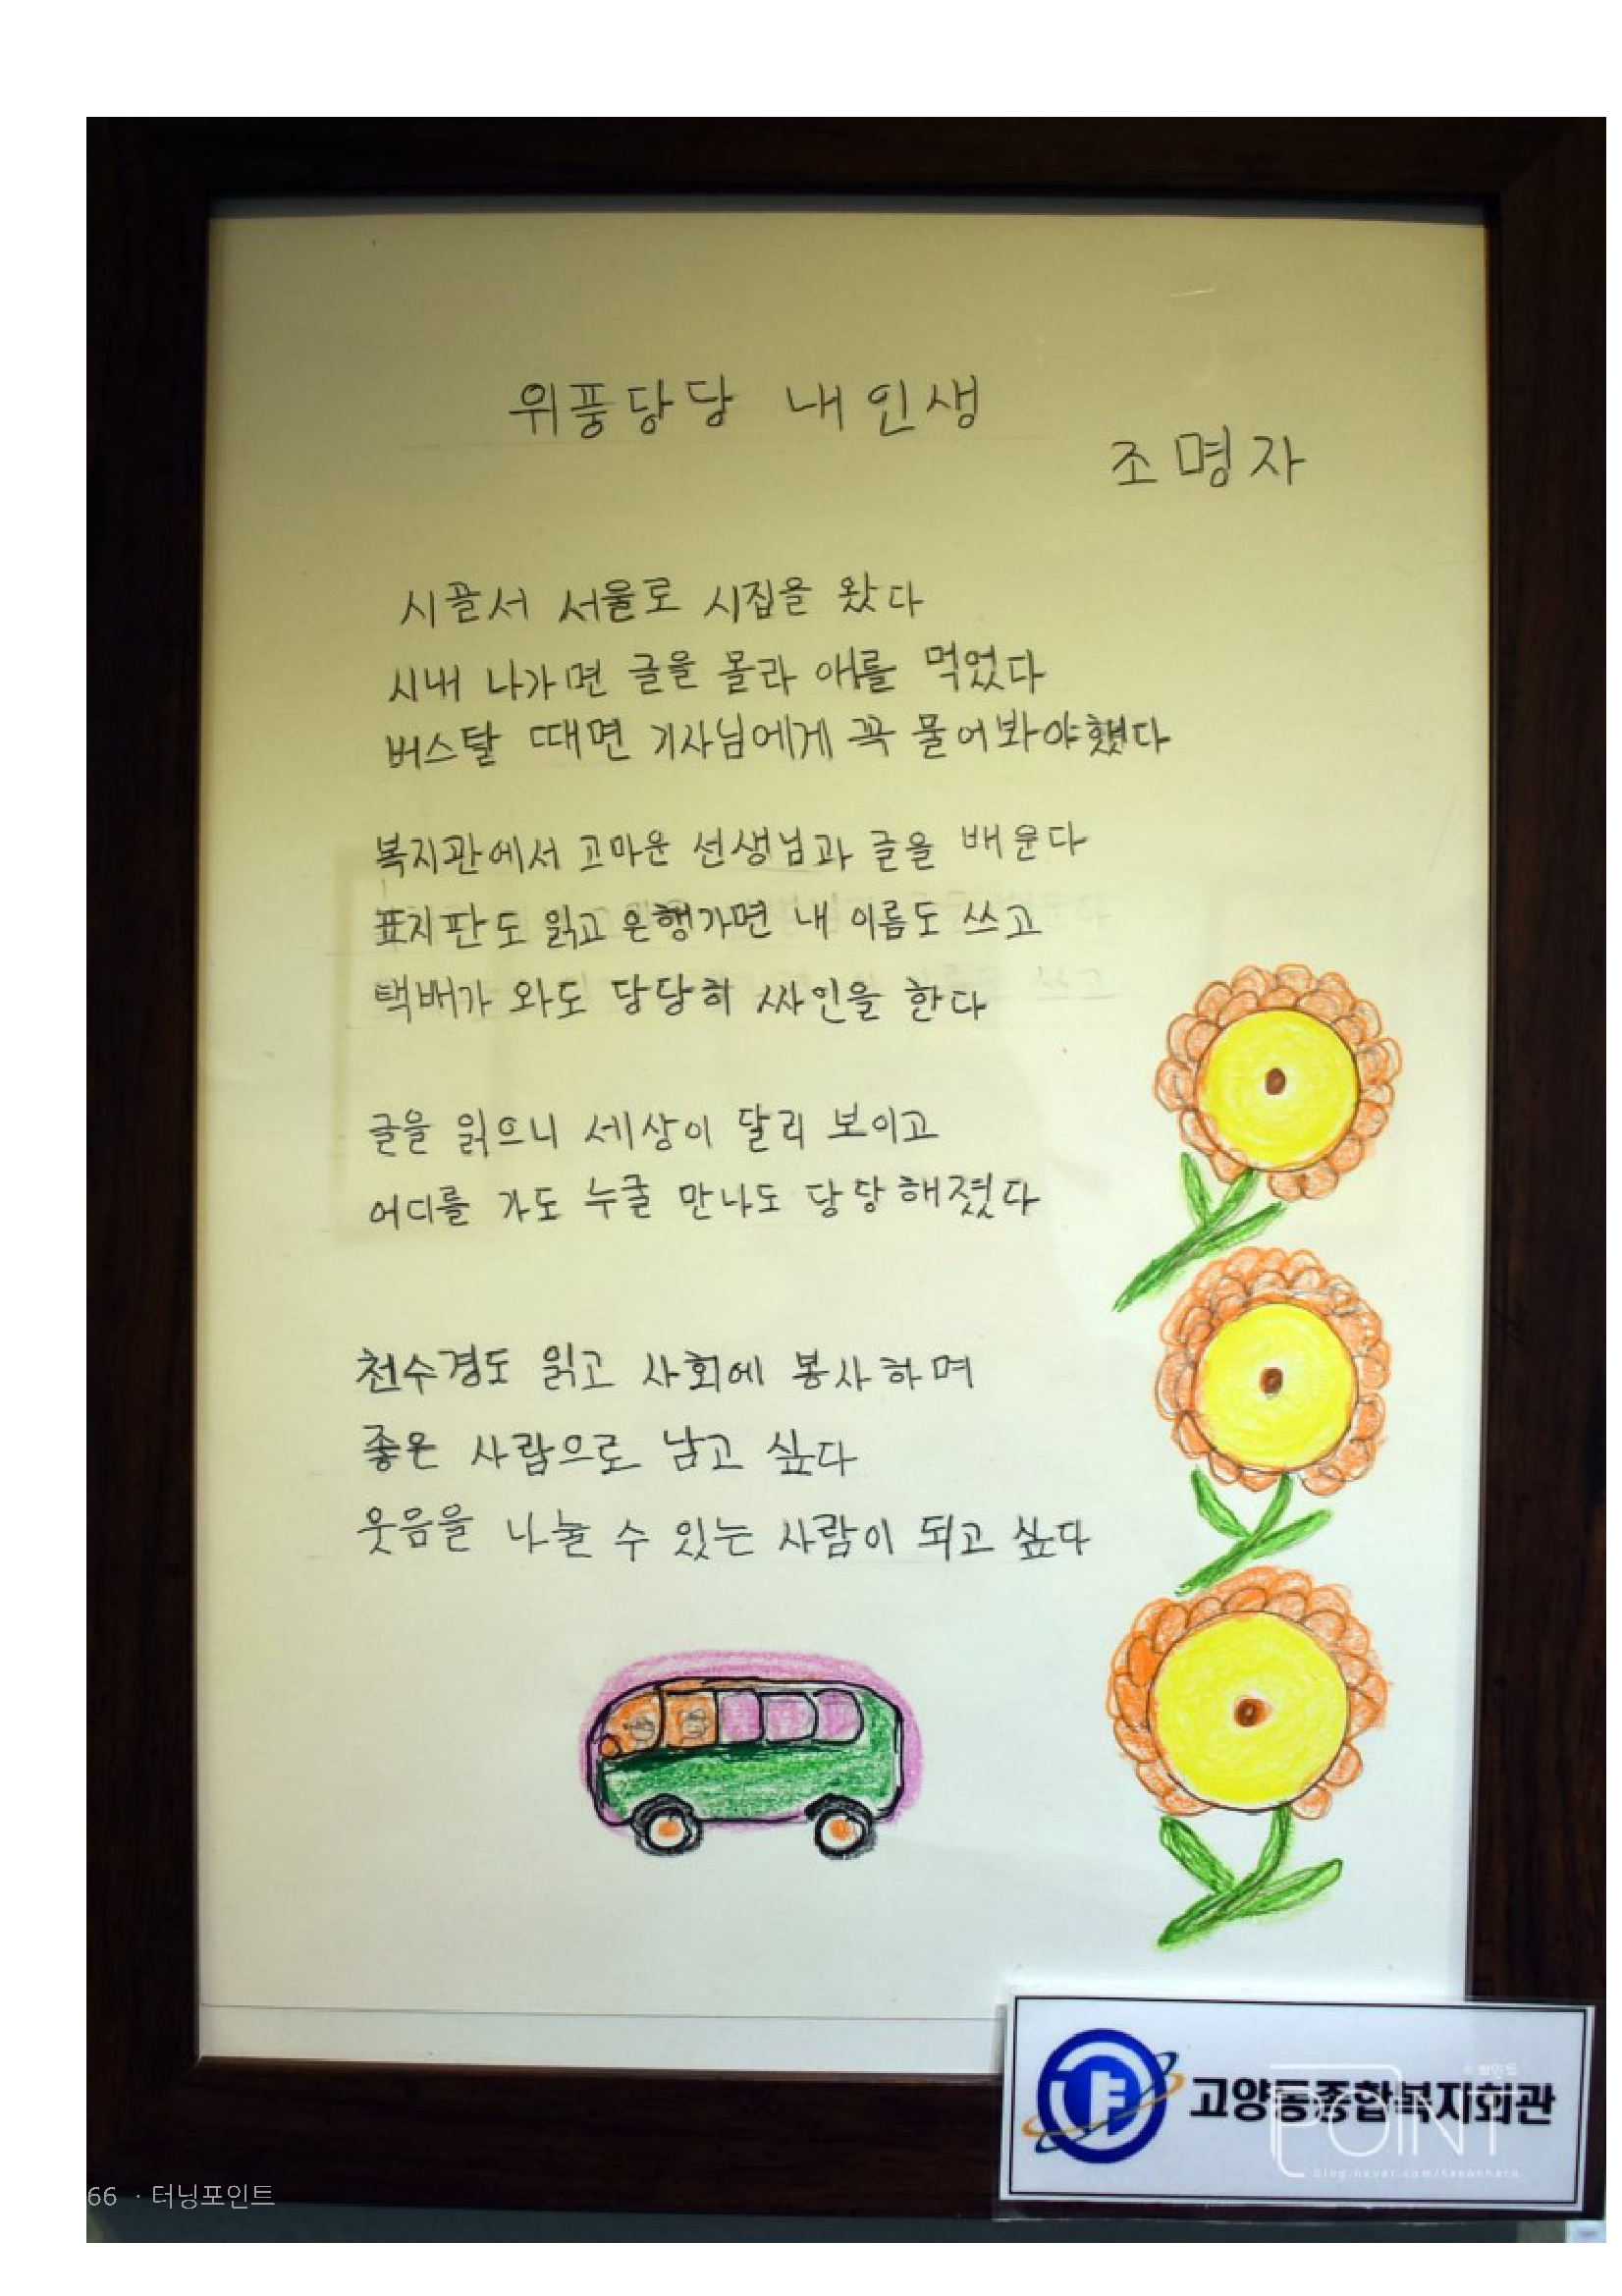 위풍당당 내 인생
조명자
시골서 서울로 시집을 왔다
시내 나가면 글을 몰라 애를 먹었다
버스탈 때면 기사님에게 꼭 물어봐야했다
복지관에서 고마운 선생님과 글을 배운다
표지판도 읽고 은행가면 내 이름도 쓰고
택배가 와도 당당히 싸인을 한다
글을 읽으니 세상이 달리 보이고
어디를 가도 누굴 만나도 당당해졌다
천수경도 읽고 사회에 봉사하며
좋은 사람으로 남고 싶다
웃음을 나눌 수 있는 사람이 되고 싶다
고양동종합복지회관
POINT
66 · 터닝포인트